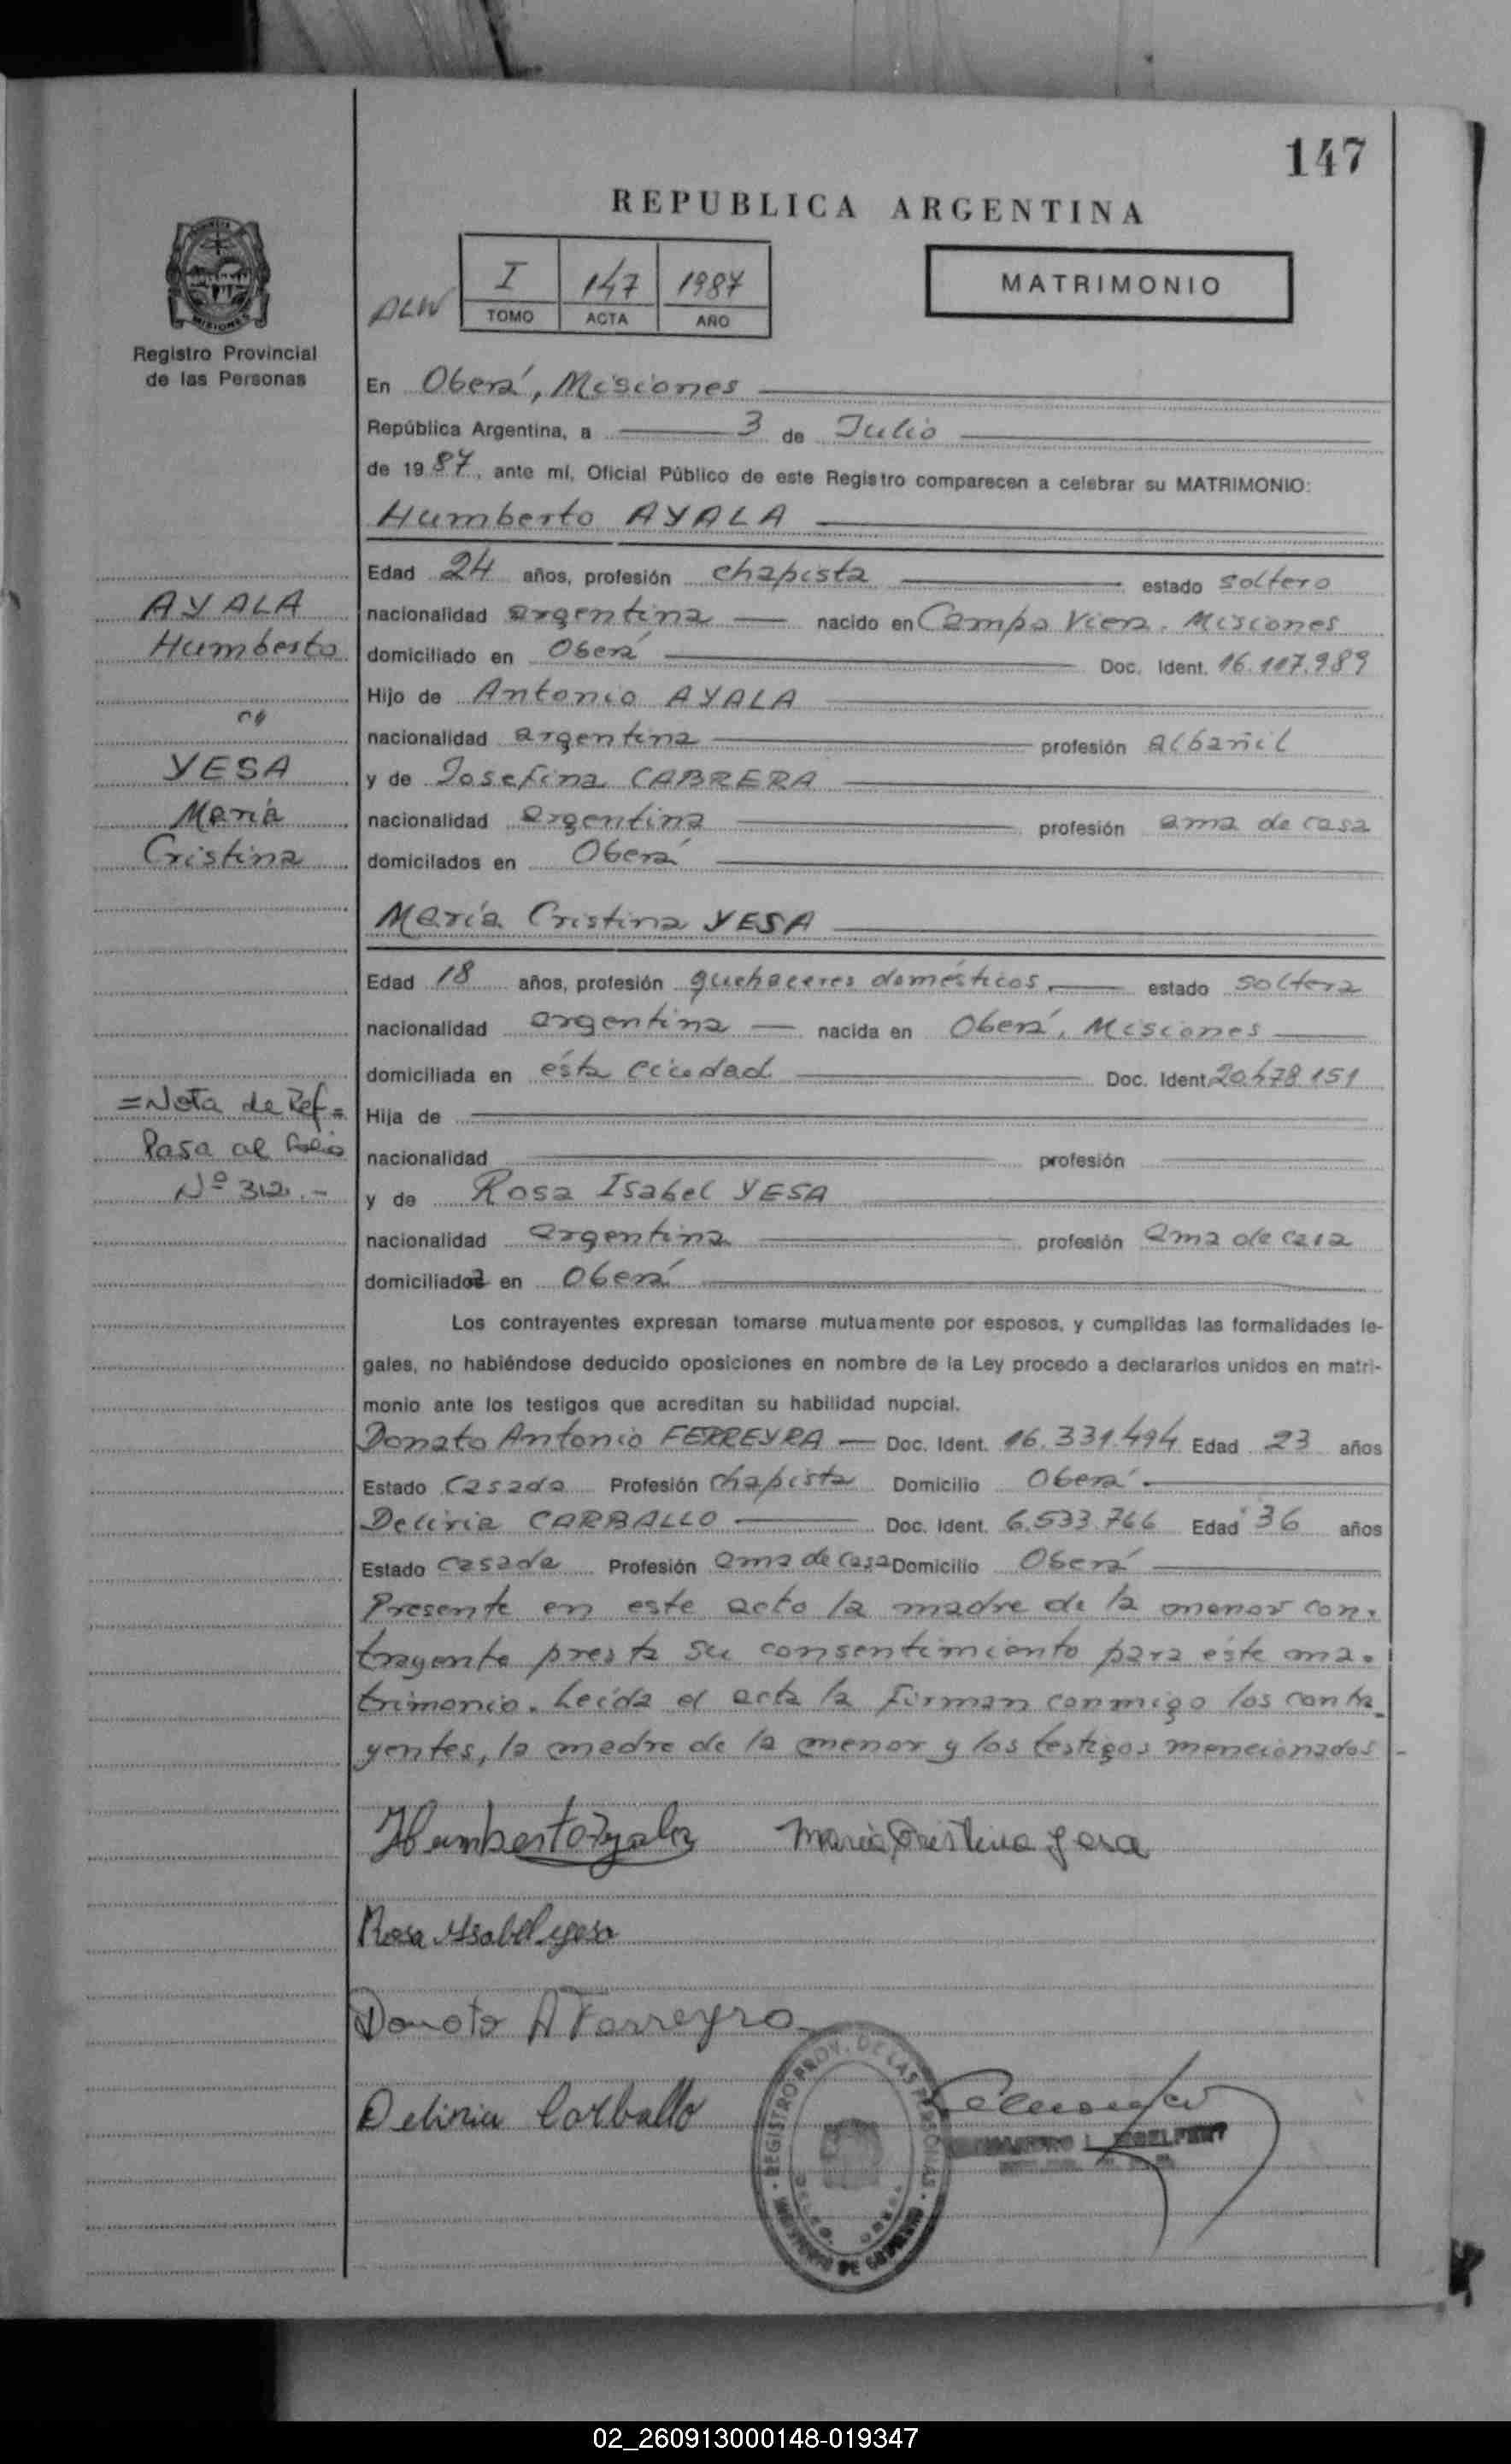 147
REPUBLICA ARGENTINA
MISIONES
Registro Provincial
de las Personas
ALW
I 147 1987
TOMO ACTA AÑO
MATRIMONIO
En Oberá, Misiones
República Argentina, a 3 de Julio
de 1987, ante mí, Oficial Público de este Registro comparecen a celebrar su MATRIMONIO:
Humberto AYALA
Edad 24 años, profesión chapista estado soltero
AYALA
nacionalidad argentina nacido en Campo Viera. Misiones
Humberto
domiciliado en Oberá Doc. Ident. 16.117.989
Hijo de Antonio AYALA
nacionalidad argentina profesión albañil
YESA
y de Josefina CABRERA
María
nacionalidad argentina profesión ama de casa
Cristina
domicilados en Oberá
María Cristina YESA
Edad 18 años, profesión quehaceres domésticos estado soltera
nacionalidad argentina nacida en Oberá, Misiones
domiciliada en ésta ciudad Doc. Ident. 20.478.151
=Nota de Ref=
Hija de
Pasa al folio
nacionalidad profesión
Nº 312.-
y de Rosa Isabel YESA
nacionalidad argentina profesión ama de casa
domiciliada en Oberá
Los contrayentes expresan tomarse mutuamente por esposos, y cumplidas las formalidades le-
gales, no habiéndose deducido oposiciones en nombre de la Ley procedo a declararlos unidos en matri-
monio ante los testigos que acreditan su habilidad nupcial.
Donato Antonio FERREYRA Doc. Ident. 16.331.494 Edad 23 años
Estado casado Profesión chapista Domicilio Oberá
Deliria CARBALLO Doc. Ident. 6.533.766 Edad 36 años
Estado casada Profesión ama de casa Domicilio Oberá
Presente en este acto la madre de la menor con-
trayente presta su consentimiento para éste ma-
trimonio. Leída el acta la firman conmigo los contra_
yentes, la madre de la menor y los testigos mencionados -
Humberto Ayala María Cristina Yesa
Rosa Ysabel yesa
Donato A Ferreyra
Deliria Carballo
REGISTRO PROV. DE LAS PERSONAS
MINISTERIO DE GOBIERNO
02_260913000148-019347